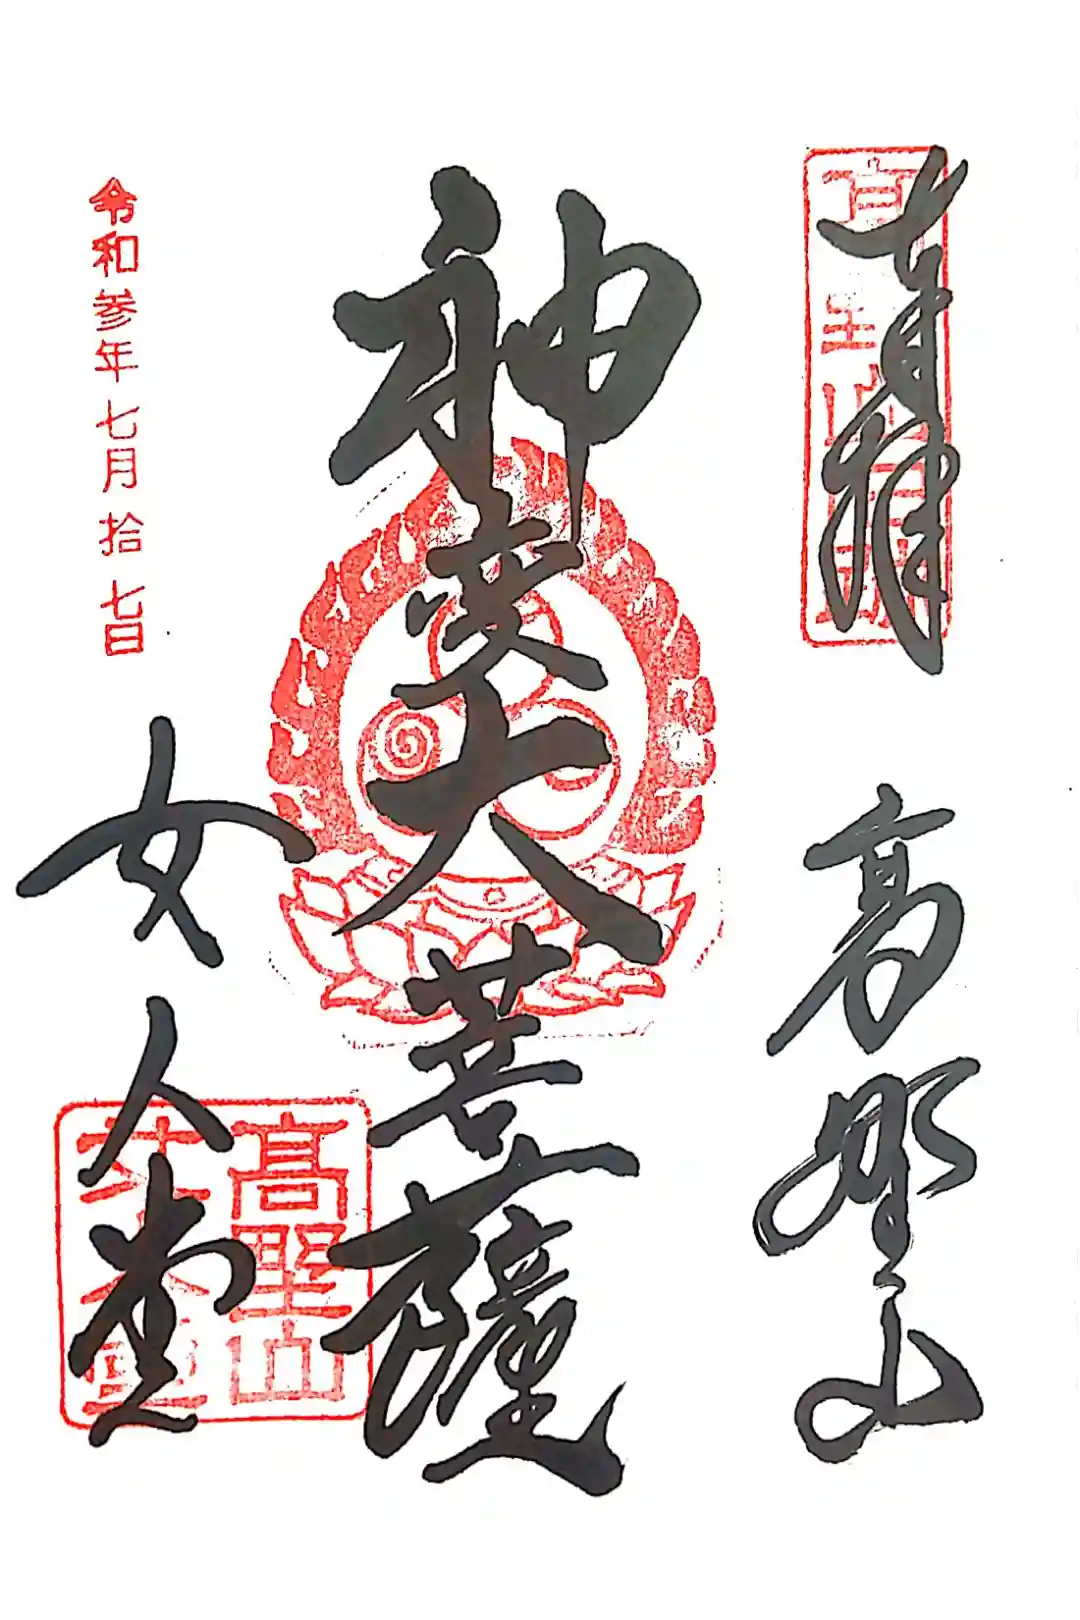 奉拝
高野山
神変大菩薩
令和参年七月拾七日
女人堂
高野山
女人堂